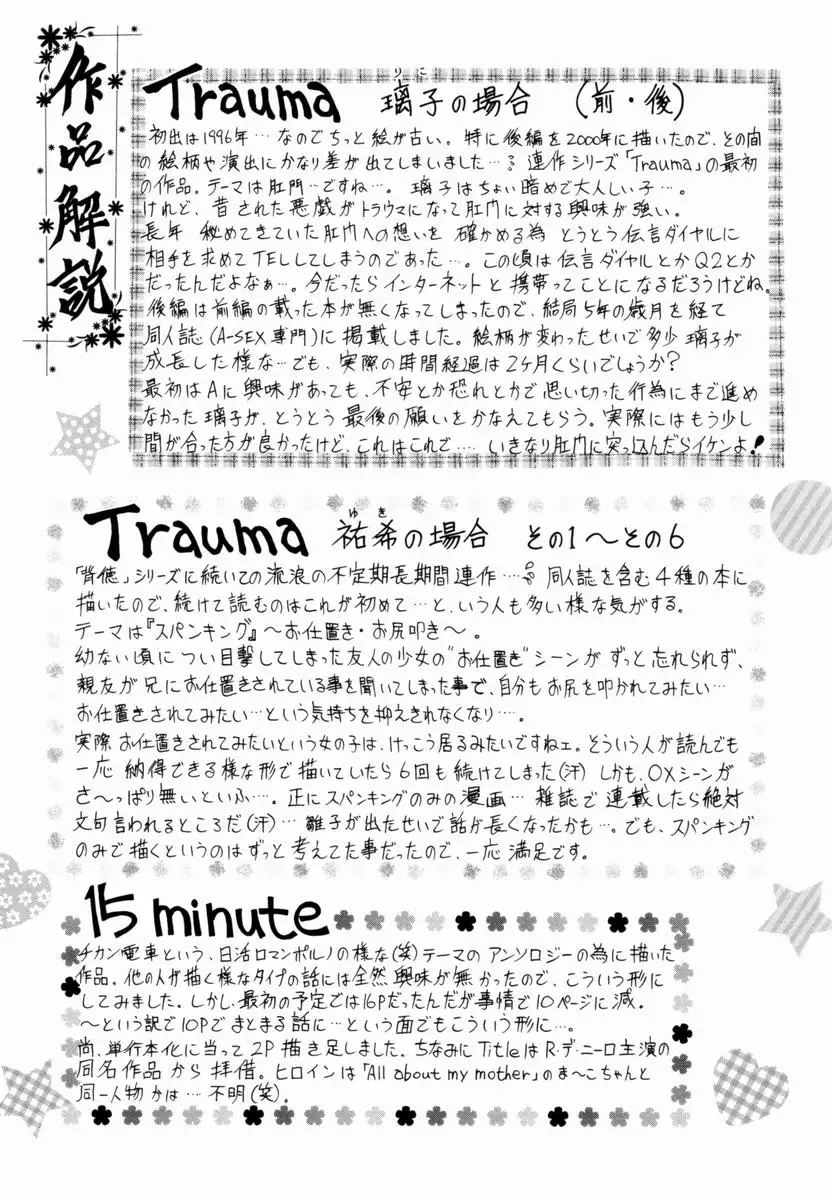 作品解説
Trauma 璃子の場合 (前・後)
りこ
初出は1996年…なのでちっと絵が古い。特に後編を2000年に描いたので、その間
の絵柄や演出にかなり差が出てしまいました…。連作シリーズ「Trauma」の最初
の作品。テーマは肛門…ですね…。璃子はちょい暗めで大人しい子…。
けれど、昔された悪戯がトラウマになって肛門に対する興味が強い。
長年 秘めてきていた肛門への想いを 確かめる為 とうとう伝言ダイヤルに
相手を求めてTELしてしまうのであった…。この頃は伝言ダイヤルとかQ2とか
だったんだよなぁ…。今だったらインターネットと携帯ってことになるだろうけどね。
後編は前編の載った本が無くなってしまったので、結局5年の歳月を経て
同人誌(A-SEX専門)に掲載しました。絵柄が変わったせいで多少 璃子が
成長した様な…でも、実際の時間経過は2ヶ月くらいでしょうか?
最初はAに興味があっても、不安とか恐れとかで思い切った行為にまで進め
なかった璃子が、とうとう最後の願いをかなえてもらう。実際にはもう少し
間が合った方が良かったけど、これはこれで…. いきなり肛門に突っ込んだらイケンよ!
Trauma 祐希の場合 その1〜その6
ゆき
「背徳」シリーズに続いての流浪の不定期長期間連作…。同人誌を含む4種の本に
描いたので、続けて読むのはこれが初めて…と、いう人も多い様な気がする。
テーマは『スパンキング』〜お仕置き・お尻叩き〜。
幼ない頃に つい目撃してしまった友人の少女の“お仕置き”シーンが ずっと忘れられず、
親友が兄にお仕置きされている事を聞いてしまった事で、自分もお尻を叩かれてみたい…
お仕置きされてみたい…という気持ちを抑えきれなくなり…。
実際 お仕置きされてみたいという女の子は、けっこう居るみたいですねェ。そういう人が読んでも
一応 納得できる様な形で描いていたら6回も続けてしまった(汗) しかも、OXシーンが
さ〜っぱり無いといふ…。正にスパンキングのみの漫画… 雑誌で連載したら絶対
文句言われるところだ(汗)… 雛子が出たせいで話が長くなったかも…。でも、スパンキング
のみで描くというのはずっと考えてた事だったので、一応 満足です。
15 minute
チカン電車という、日活ロマンポルノの様な(笑)テーマのアンソロジーの為に描いた
作品。他の人が描く様なタイプの話には全然興味が無かったので、こういう形に
してみました。しかし、最初の予定では16Pだったんだが事情で10ページに減。
〜という訳で10Pでまとまる話に…という面でもこういう形に…。
尚、単行本化に当って2P描き足しました。ちなみにTitleはR・デ・ニーロ主演の
同名作品から拝借。ヒロインは「All about my mother」のま〜こちゃんと
同一人物かは… 不明(笑)。